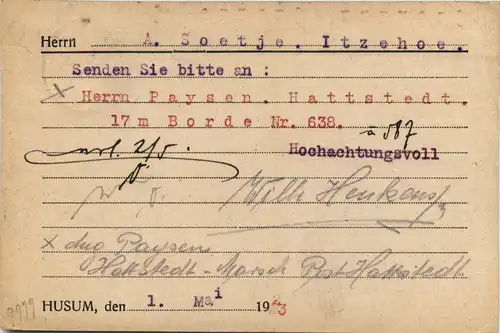 Herrn A. Soetje. Itzehoe.
Senden Sie bitte an :
x Herrn Paysen. Hattstedt.
17m Borde Nr. 638. a 587
erl. 2/5. Hochachtungsvoll
Wilh Henkens
x Paysen
Hattstedt-Marsch Post Hattstedt
HUSUM, den 1. Mai 1923